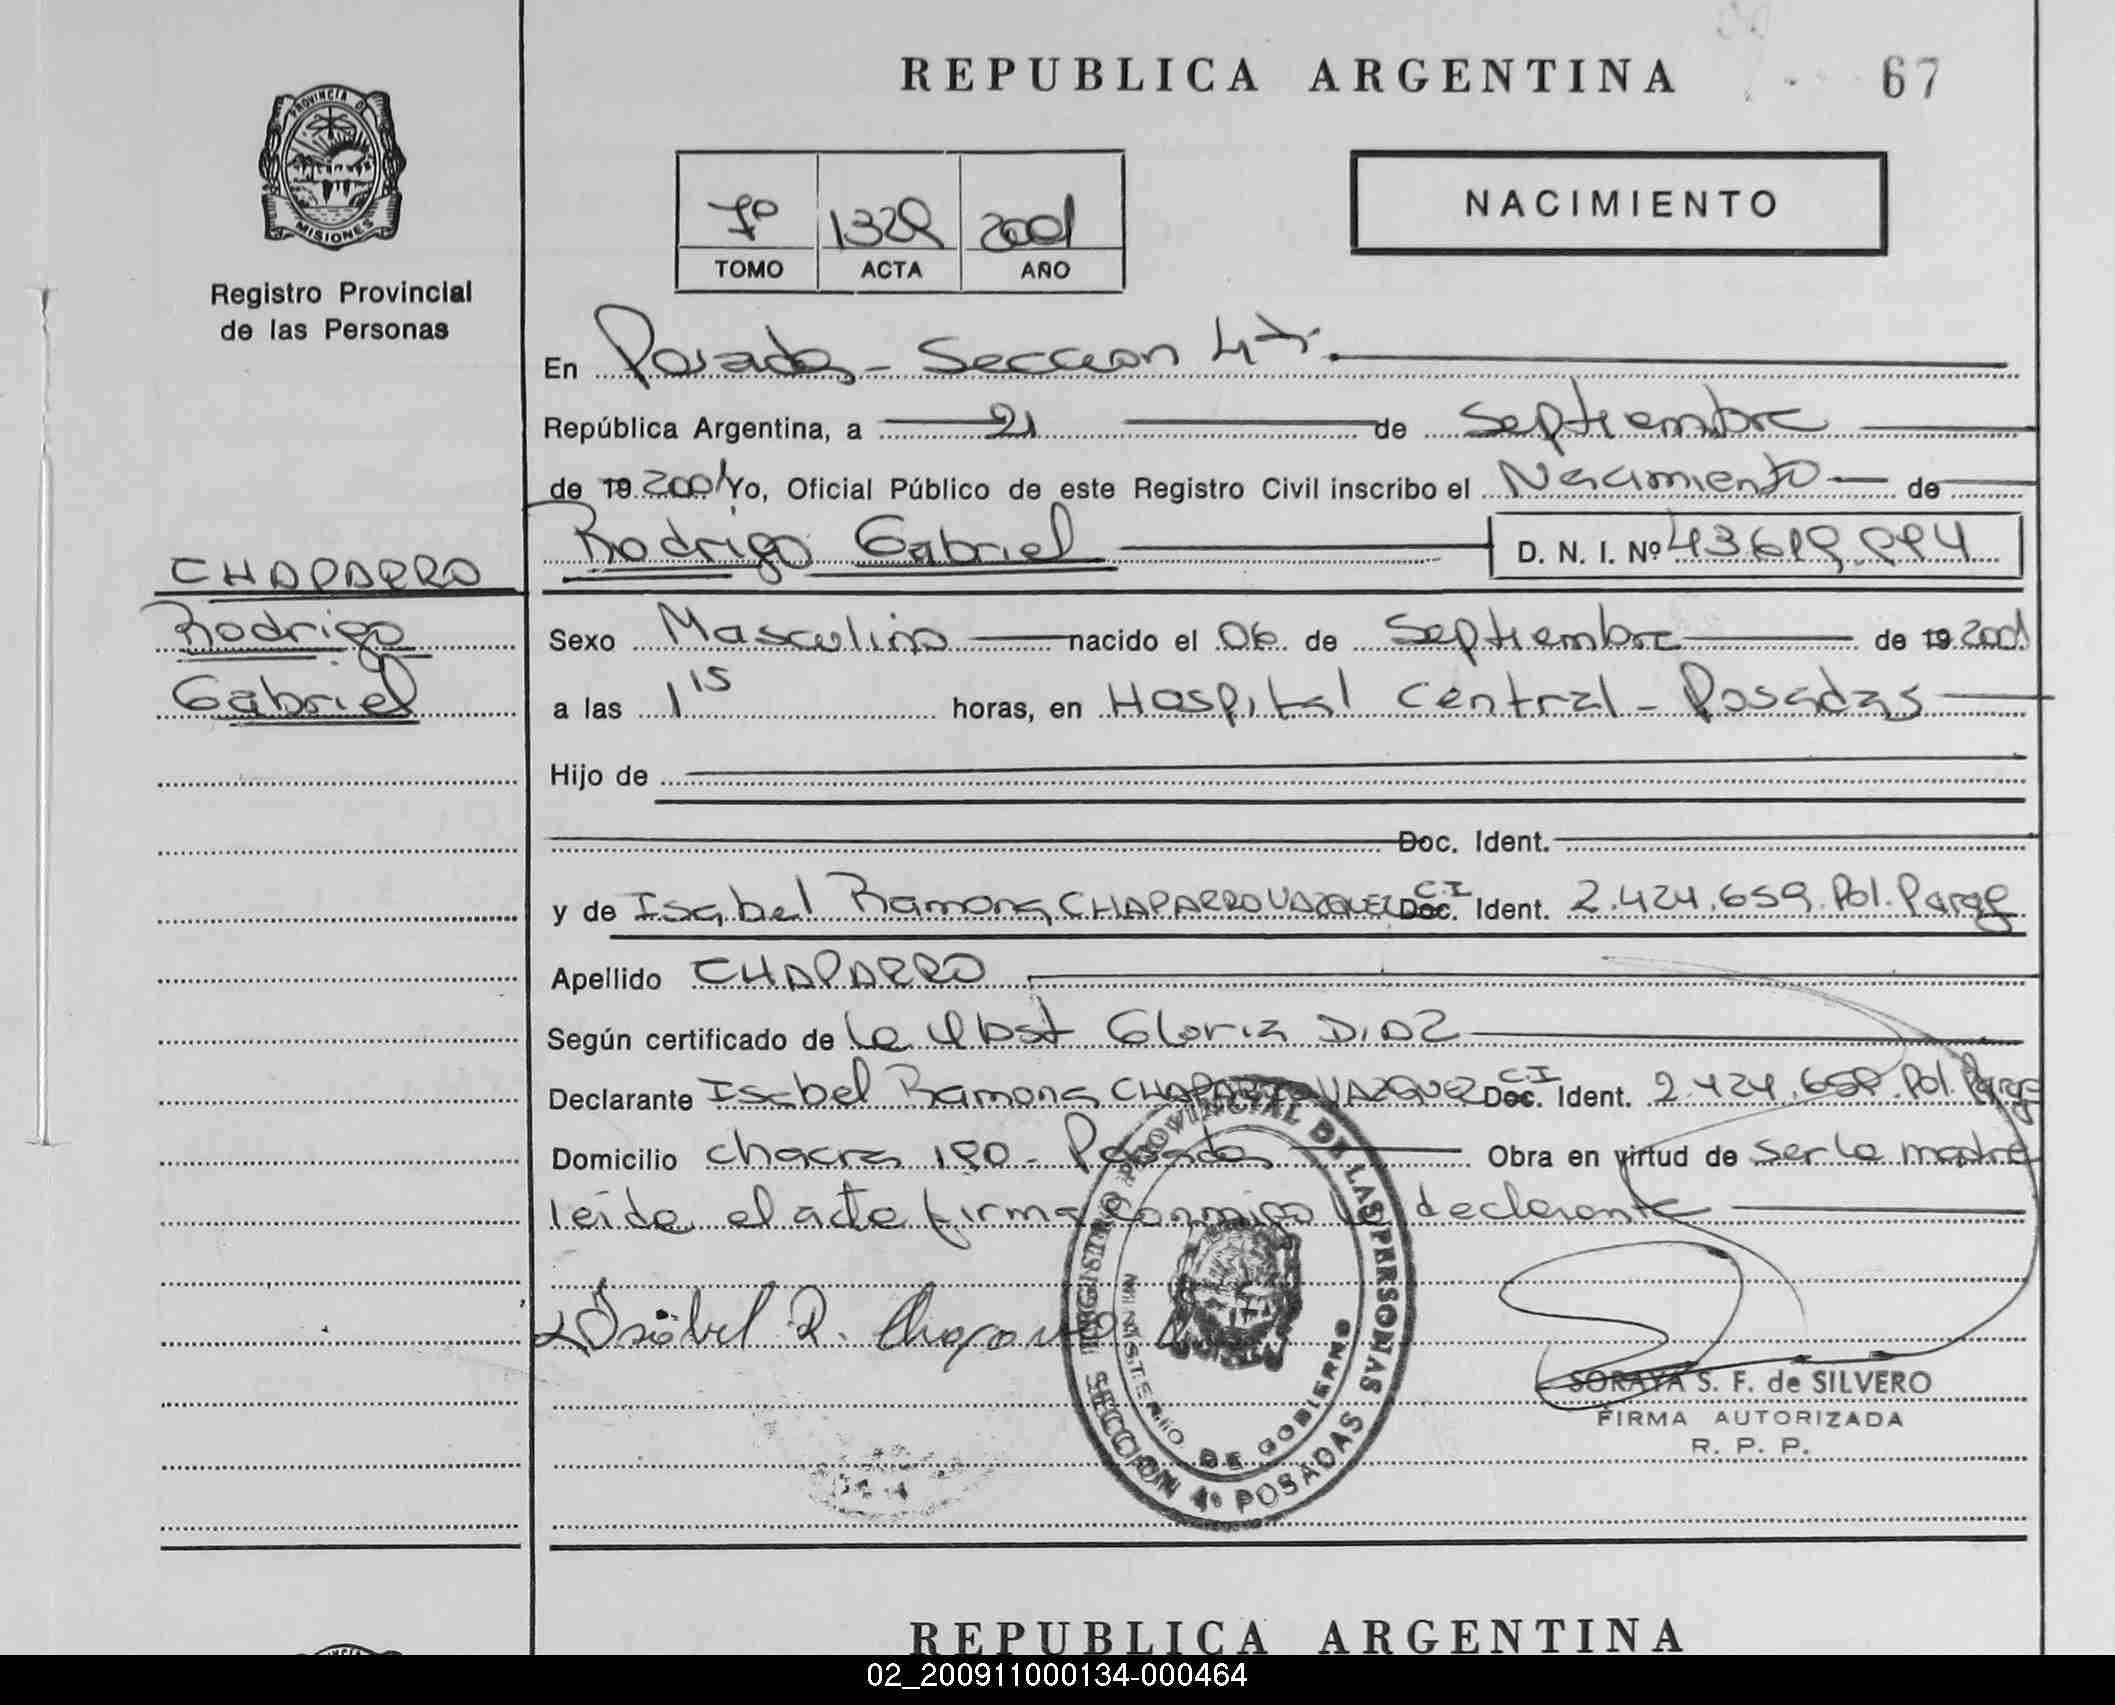 REPUBLICA ARGENTINA
67
PROVINCIA D
MISIONES
Registro Provincial
de las Personas
7º 1329 2001
TOMO ACTA AÑO
NACIMIENTO
En Posadas - Seccion 4ta.
República Argentina, a 21 de Septiembre
de 19 2001 Yo, Oficial Público de este Registro Civil inscribo el Nacimiento de
Rodrigo Gabriel D. N. I. Nº
CHAPARRO
Rodrigo
Gabriel
Sexo Masculino nacido el 06 de Septiembre de 19 2001
a las 1 15 horas, en Hospital Central - Posadas
Hijo de
Doc. Ident.
y de Isabel Ramona CHAPARRO VAZQUEZ C.I Doc. Ident. 2.424.659. Pol. Parag
Apellido CHAPARRO
Según certificado de la Obst Gloria DIAZ
Declarante Isabel Ramona CHAPARRO VAZQUEZ C.I Doc. Ident. 2.424.659. Pol. Parag
Domicilio chacra 190 - Posadas Obra en virtud de ser la madre
leida el acta firma conmigo la declarante
Isabel R. Chaparro
REGISTRO PROVINCIAL DE LAS PERSONAS
MINISTERIO DE GOBIERNO
SECCION 4ª POSADAS
SORAYA S. F. de SILVERO
FIRMA AUTORIZADA
R. P. P.
REPUBLICA ARGENTINA
02_200911000134-000464